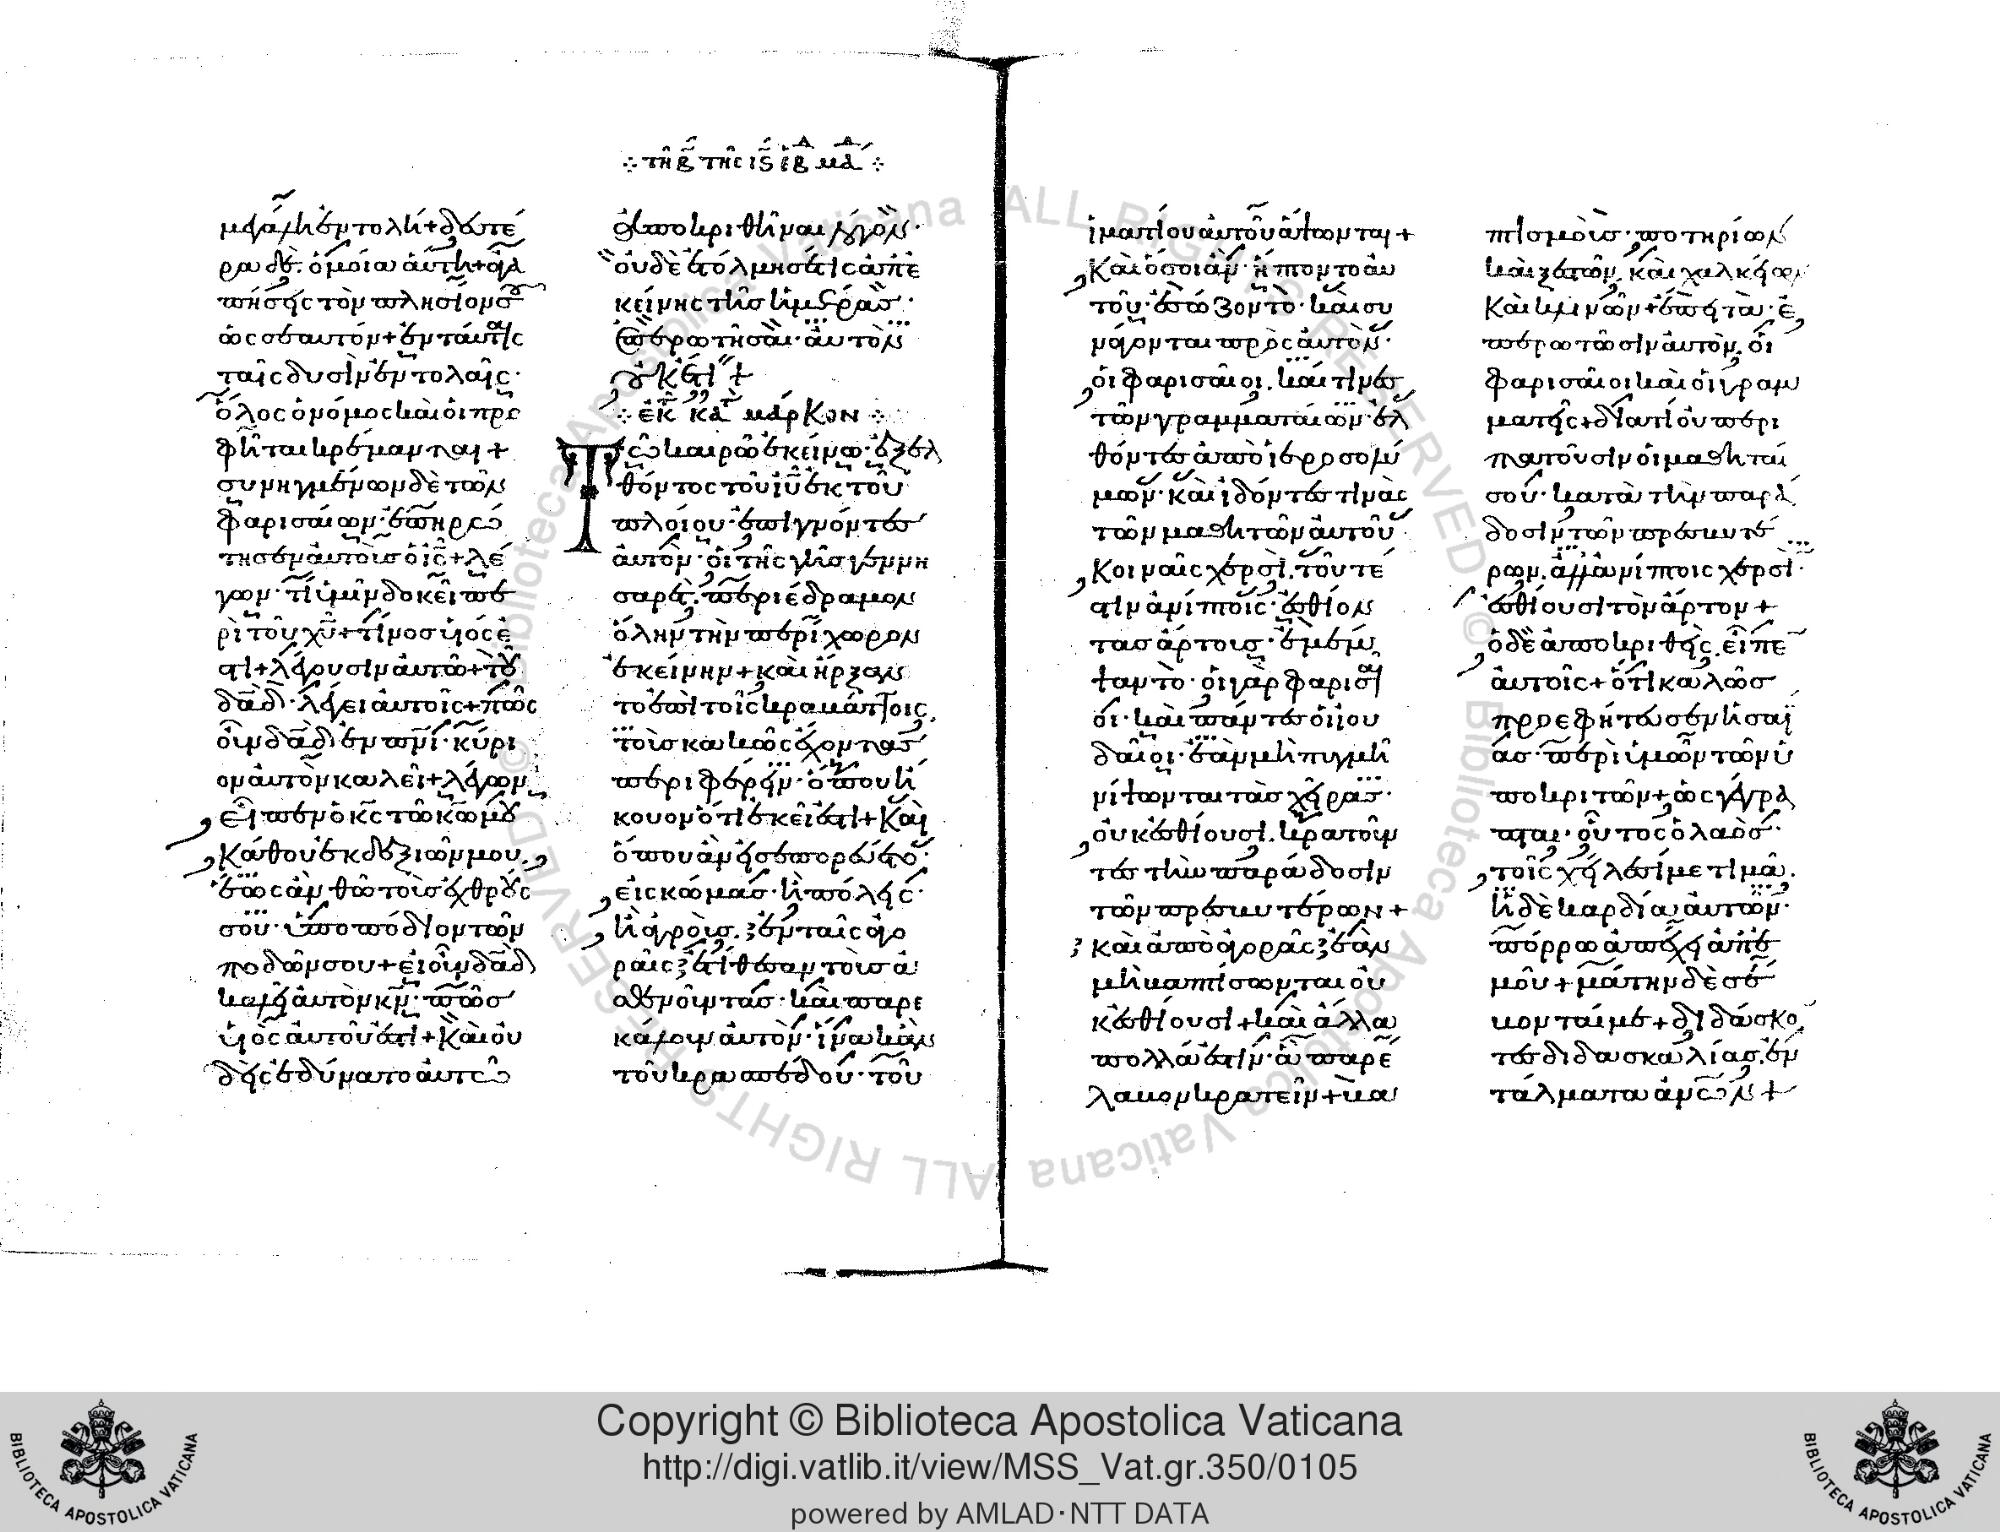 μεγάλη ἐντολή + δευτέ
ρα δὲ. ὁμοία αὐτῆ + ἀγα
πήσεις τὸν πλησίον σου
ὡς σεαυτόν + ἐν ταύταις
ταῖς δυσὶν ἐντολαῖς ·
ὅλος ὁ νόμος καὶ οἱ προ
φῆται κρέμανται +
συνηγμένων δὲ τῶν
φαρισαίων · ἐπηρώ
τησεν αὐτοὺς ὁ ις̅ + λέ
γων · τί ὑμῖν δοκεῖ πε
ρὶ τοῦ χυ̅ + τίνος υἱός ἐ
στι + λέγουσιν αὐτῶ + τοῦ
δα̅δ · λέγει αὐτοῖς + πῶς
οὖν δα̅δ ἐν πνι̅ · κύρι
ον αὐτὸν καλεῖ + λέγων
εἶπεν ὁ κς̅ τῶ κω̅ μου
κάθου ἐκ δεξιῶν μου,
ἕως ἂν θῶ τοὺς ἐχθρούς
σου · ὑποπόδιον τῶν
ποδῶν σου + εἰ οὖν δα̅δ
καλεῖ αὐτὸν κν̅ · πῶς
υἱὸς αὐτοῦ ἐστι + καὶ οὐ
δεὶς ἐδύνατο αὐτῶ
⁘ τῆ β τῆς ις ἑβδμαδ ⁘
ἀποκριθῆναι λόγον ·
οὐδὲ ἐτόλμησέ τις ἀπ' ἐ
κείνης τῆς ἡμέρας ·
ἐπερωτῆσαι · αὐτὸν
οὐκέτι +
⁘ ἐκ κατ μάρκον ⁘
Τῶ καιρῶ ἐκείνω · ἐξελ
θόντος τοῦ ιυ̅ ἐκ τοῦ
πλοίου · ἐπιγνόντες
αὐτὸν · οἱ τῆς γῆς γεννη
σαρέτ. περιέδραμον
ὅλην τὴν περίχωρον
ἐκείνην + καὶ ἤρξαν
το ἐπὶ τοῖς κραμάττοις,
τοὺς κακῶς ἔχοντας
περιφέρειν · ὅπου ἤ
κουον ὅτι ἐκεῖ ἐστι + Καὶ
ὅπου ἂν εἰσεπορεύετο ·
εἰς κώμας · ἢ πόλεις ·
ἢ ἀγροὺς. ἐν ταῖς ἀγο
ραῖς ἐτίθεσαν τοὺς ἀ
σθενοῦντας · καὶ παρε
κάλουν αὐτὸν · ἵνα κἂν
τοῦ κρασπέδου · τοῦ
ἱματίου αὐτοῦ ἅψωνται +
Καὶ ὅσοι ἂν · ἥπτοντο αὐ
τοῦ · ἐσώζοντο · καὶ συ
νάγονται πρὸς αὐτὸν ·
οἱ φαρισαῖοι. καὶ τινὲς
τῶν γραμματαίων · ἐλ
θόντες ἀπὸ ἱεροσολύ
μων · καὶ ἰδόντες τινὰς
τῶν μαθητῶν αὐτοῦ
Κοιναῖς χερσὶ. τοῦτέ
στιν ἀνίπτοις · ἐσθίον
τας ἄρτους · ἐμέμ
ψαντο · οἱ γὰρ φαρισαῖ
οι · καὶ πάντες οἱ ἰου
δαῖοι · ἐὰν μὴ πυγμῆ
νίψωνται τὰς χεῖρας ·
οὐκ ἐσθίουσι. κρατοῦν
τες τὴν παράδοσιν
τῶν πρεσβυτέρων +
καὶ ἀπὸ ἀγορᾶς ἐὰν
μὴ βαπτίσωνται οὐ
κ ἐσθίουσι + καὶ ἄλλα
πολλά ἐστίν · ἃ παρέ
λαβον κρατεῖν + βα
πτισμοὺς · ποτηρίων
καὶ ξεστῶν. καὶ χαλκείων
Καὶ κλινῶν + ἔπειτα · ἐ
περωτῶσιν αὐτὸν. οἱ
φαρισαῖοι καὶ οἱ γραμ
ματεῖς + διατί οὐ περι
πατοῦσιν οἱ μαθηταί
σου · κατὰ τὴν παρά
δοσιν τῶν πρεσβυτέ
ρων. ἀλλὰ ἀνίπτοις χερσὶ ·
ἐσθίουσι τὸν ἄρτον +
ὁ δὲ ἀποκριθεὶς. εἶπε
αὐτοῖς + ὅτι καλῶς
προεφήτευσεν ἡσαΐ
ας · περὶ ὑμῶν τῶν ὑ
ποκριτῶν + ὡς γέγρα
πται · οὗτος ὁ λαὸς ·
τοῖς χείλεσί με τιμᾶ.
ἡ δὲ καρδία αὐτῶν ·
πόρρω ἀπέχει ἀπ' ἐ
μοῦ + μάτην δὲ σέ
βονταί με + διδάσκον
τες διδασκαλίας. ἐν
τάλματα ἀνων̅ +
Copyright © Biblioteca Apostolica Vaticana
http://digi.vatlib.it/view/MSS_Vat.gr.350/0105
powered by AMLAD·NTT DATA
BIBLIOTECA APOSTOLICA VATICANA
BIBLIOTECA APOSTOLICA VATICANA
© Biblioteca Apostolica Vaticana ALL RIGHTS RESERVED
© Biblioteca Apostolica Vaticana ALL RIGHTS RESERVED